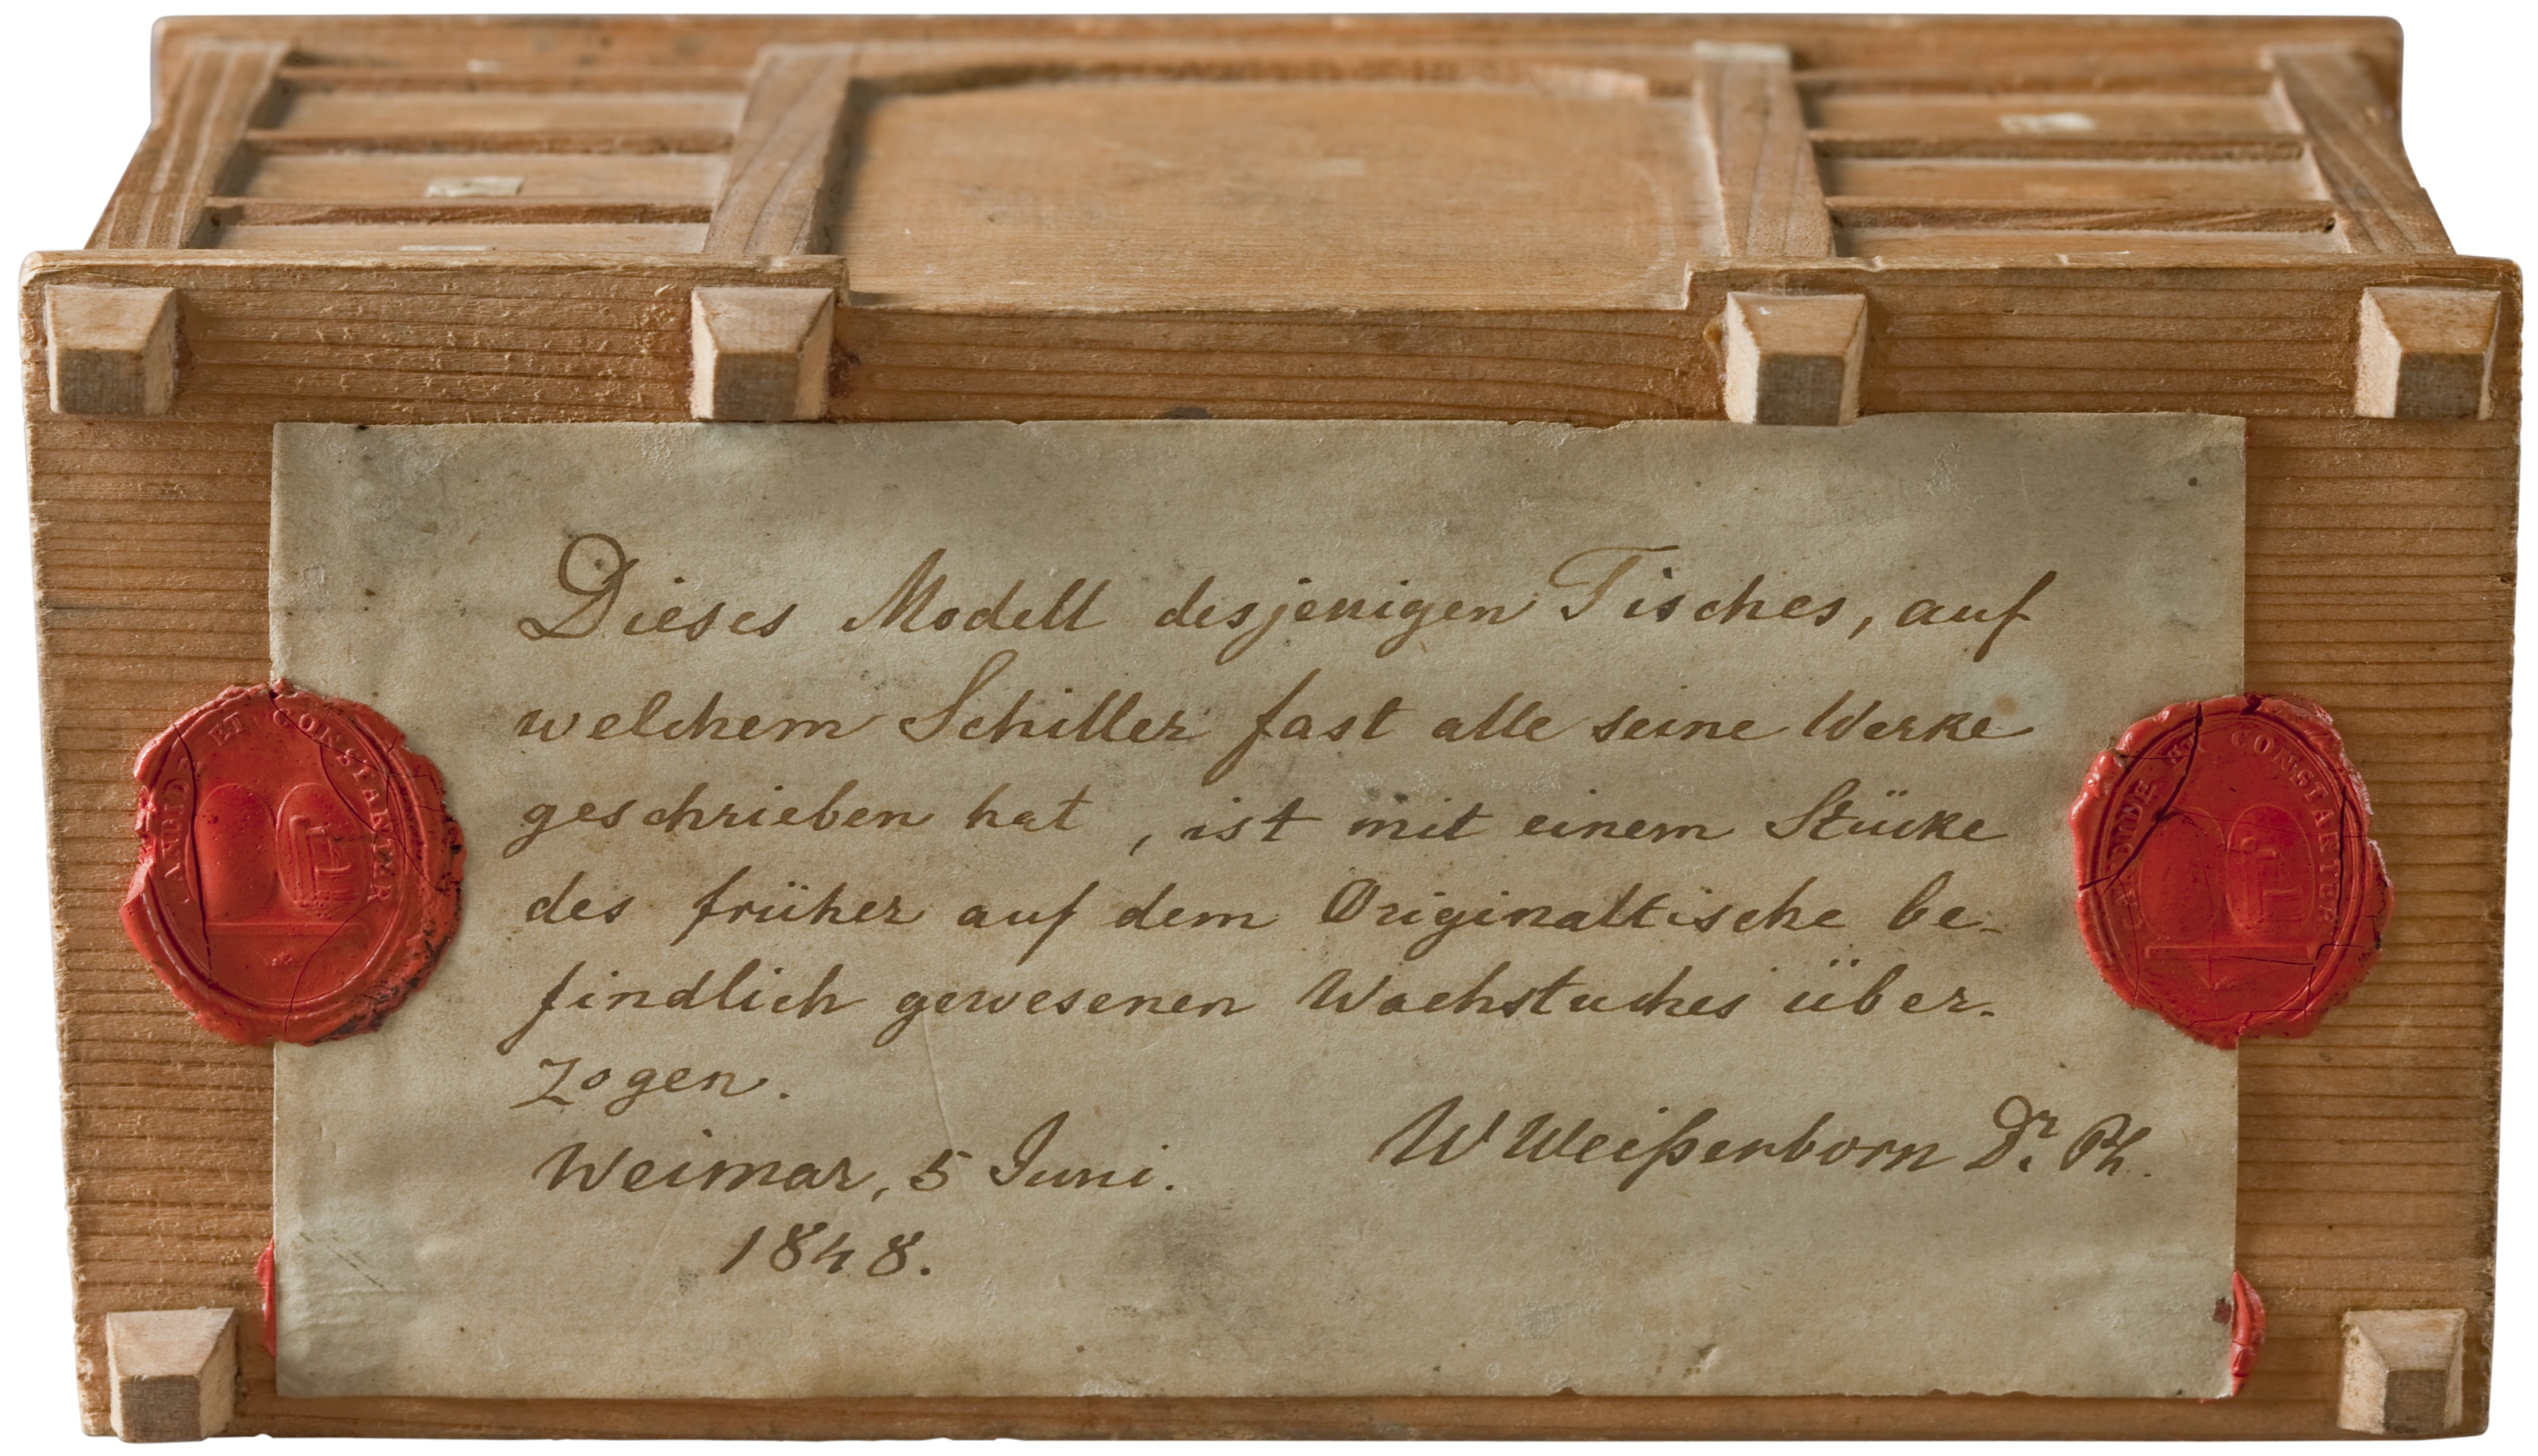 Dieses Modell desjenigen Tisches, auf
welchem Schiller fast alle seine Werke
geschrieben hat, ist mit einem Stücke
des früher auf dem Originaltische be-
findlich gewesenen Wachstuches über-
zogen.
Weimar, 5 Juni.
1848.
W Weißenborn Dr. Ph.
CANDIDE ET CONSTANTER
CANDIDE ET CONSTANTER